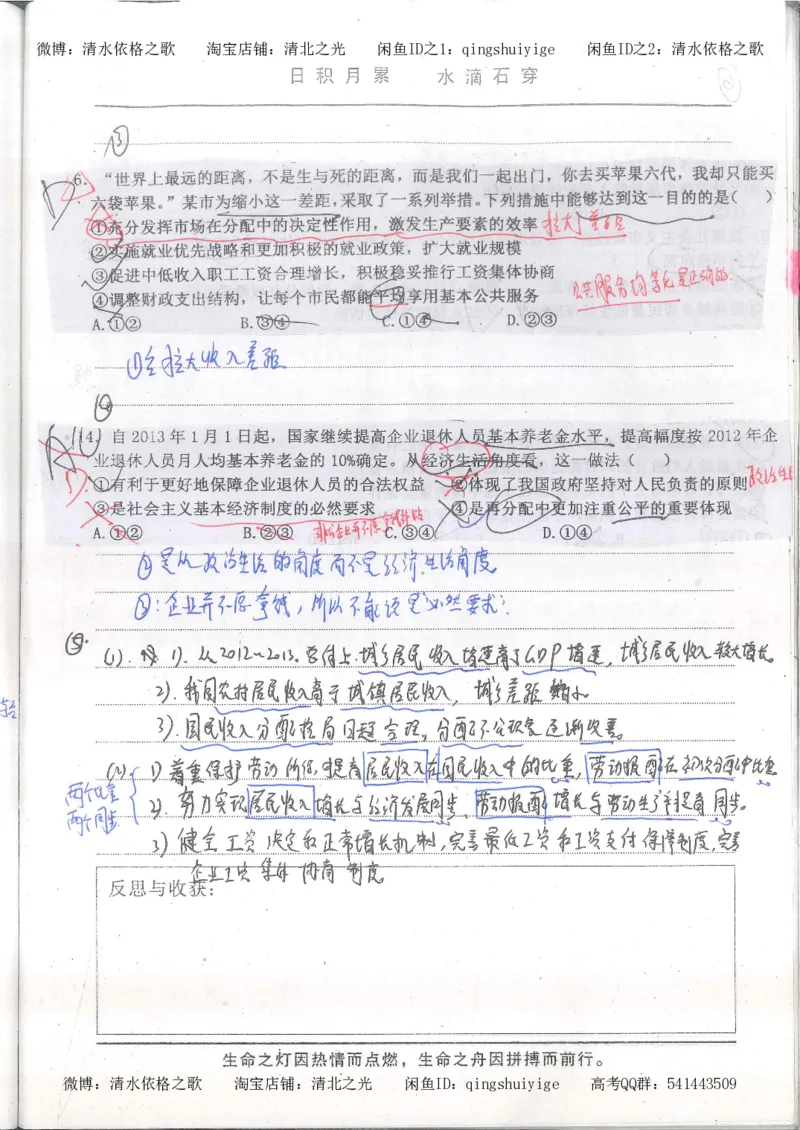 微博：清水依格之歌 淘宝店铺：清北之光 闲鱼ID之1：qingshuiyige 闲鱼ID之2：清水依格之歌
日积月累 水滴石穿
③
D
6. “世界上最远的距离，不是生与死的距离，而是我们一起出门，你去买苹果六代，我却只能买
六袋苹果。”某市为缩小这一差距，采取了一系列举措。下列措施中能够达到这一目的的是（ ）
①充分发挥市场在分配中的决定性作用，激发生产要素的效率 拉大差距
②实施就业优先战略和更加积极的就业政策，扩大就业规模
③促进中低收入职工工资合理增长，积极稳妥推行工资集体协商
④调整财政支出结构，让每个市民都能平均享用基本公共服务 公共服务均等化是正确的.
A.①② B.③④ C.①④ D.②③
①会拉大收入差距
④
14. 自 2013 年 1 月 1 日起，国家继续提高企业退休人员基本养老金水平，提高幅度按 2012 年企
业退休人员月人均基本养老金的 10%确定。从经济生活角度看，这一做法（ ）
①有利于更好地保障企业退休人员的合法权益 ②体现了我国政府坚持对人民负责的原则 政治生活
③是社会主义基本经济制度的必然要求 ④是再分配中更加注重公平的重要体现
A.①② B.②③ C.③④ D.①④
②是从政治生活的角度而不是经济生活角度
③：企业并不愿拿钱，所以不能说是“必然要求”.
⑤.
(1). 1). 从2012~2013. 总体上.城乡居民收入增速高于GDP增速，城乡居民收入较大增长
2). 我国农村居民收入高于城镇居民收入，城乡差距缩小
3). 国民收入分配格局日趋合理，分配不公现象逐渐改善。
(2) 1) 着重保护劳动所得，提高居民收入在国民收入中的比重，劳动报酬在初次分配中比重
两个比重
两个同步
2). 努力实现居民收入增长与经济发展同步、劳动报酬增长与劳动生产率提高同步。
3) 健全工资决定和正常增长机制，完善最低工资和工资支付保障制度，完善
企业工资集体协商制度
反思与收获：
生命之灯因热情而点燃，生命之舟因拼搏而前行。
微博：清水依格之歌 淘宝店铺：清北之光 闲鱼ID：qingshuiyige 高考QQ群：541443509